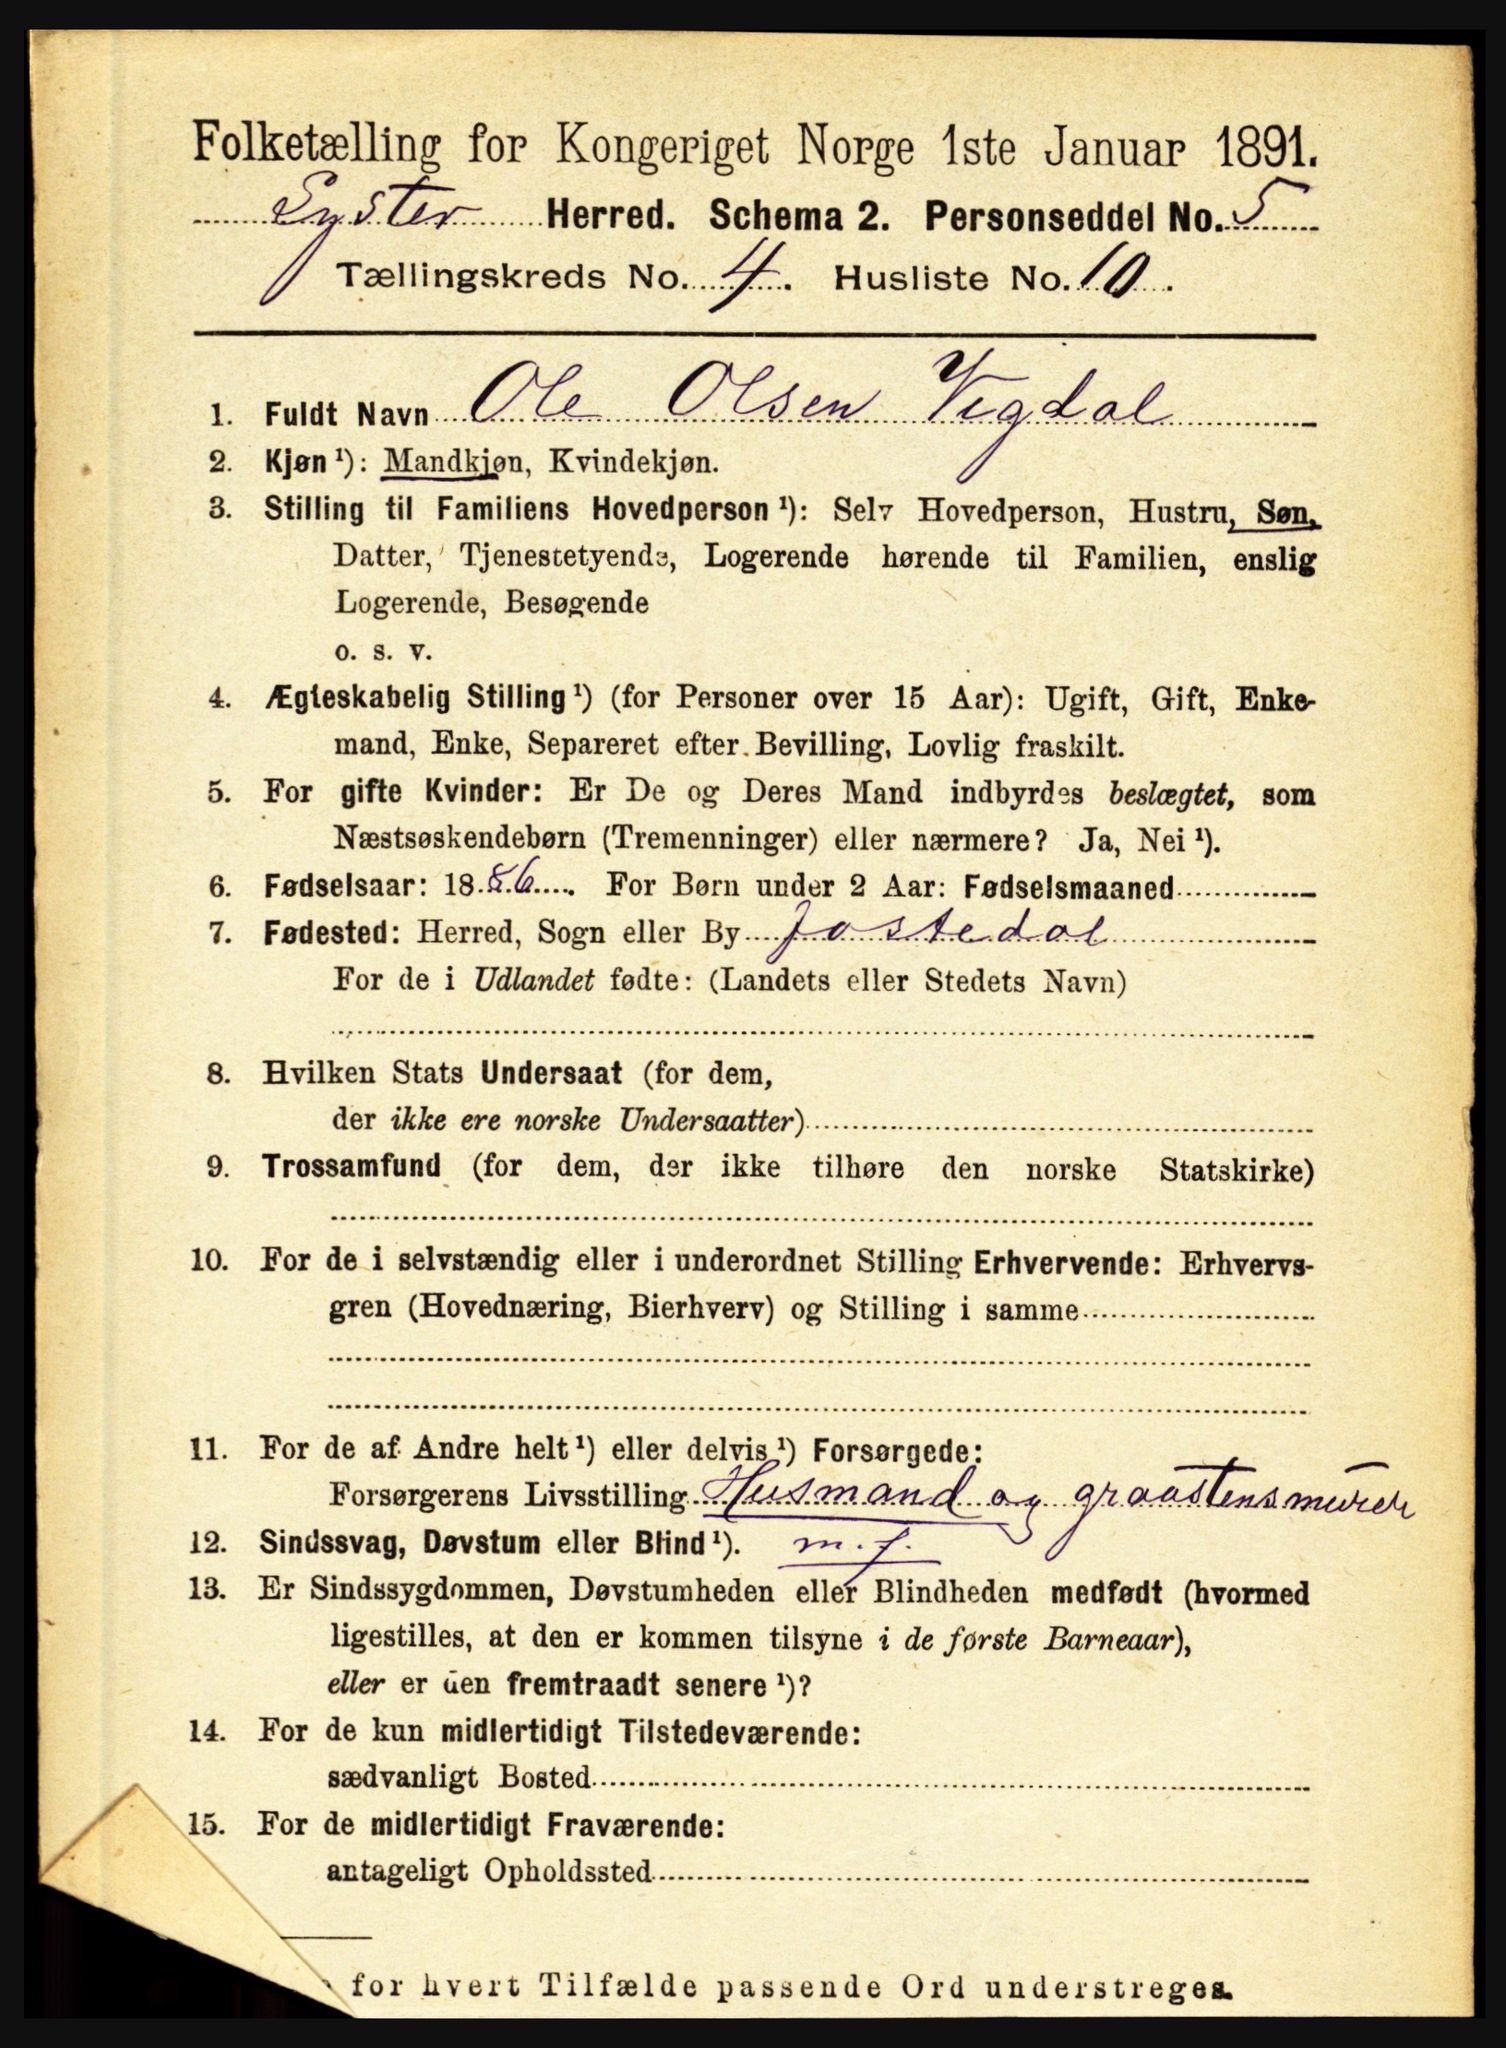 Folketælling for Kongeriget Norge 1ste Januar 1891.
Lyster Herred. Schema 2. Personseddel No. 5
Tællingskreds No. 4. Husliste No. 10.
1. Fuldt Navn Ole Olsen Vigdal
2. Kjøn ¹): Mandkjøn, Kvindekjøn.
3. Stilling til Familiens Hovedperson ¹): Selv Hovedperson, Hustru, Søn,
Datter, Tjenestetyende, Logerende hørende til Familien, enslig
Logerende, Besøgende
o. s. v.
4. Ægteskabelig Stilling ¹) (for Personer over 15 Aar): Ugift, Gift, Enke-
mand, Enke, Separeret efter Bevilling, Lovlig fraskilt.
5. For gifte Kvinder: Er De og Deres Mand indbyrdes beslægtet, som
Næstsøskendebørn (Tremenninger) eller nærmere? Ja, Nei ¹).
6. Fødselsaar: 1886. For Børn under 2 Aar: Fødselsmaaned
7. Fødested: Herred, Sogn eller By Jostedal
For de i Udlandet fødte: (Landets eller Stedets Navn)
8. Hvilken Stats Undersaat (for dem,
der ikke ere norske Undersaatter)
9. Trossamfund (for dem, der ikke tilhøre den norske Statskirke)
10. For de i selvstændig eller i underordnet Stilling Erhvervende: Erhvervs-
gren (Hovednæring, Bierhverv) og Stilling i samme
11. For de af Andre helt ¹) eller delvis ¹) Forsørgede:
Forsørgerens Livsstilling Husmand og graastensmurer
12. Sindssvag, Døvstum eller Blind ¹). m. f.
13. Er Sindssygdommen, Døvstumheden eller Blindheden medfødt (hvormed
ligestilles, at den er kommen tilsyne i de første Barneaar),
eller er den fremtraadt senere ¹)?
14. For de kun midlertidigt Tilstedeværende:
sædvanligt Bosted
15. For de midlertidigt Fraværende:
antageligt Opholdssted
for hvert Tilfælde passende Ord understreges.